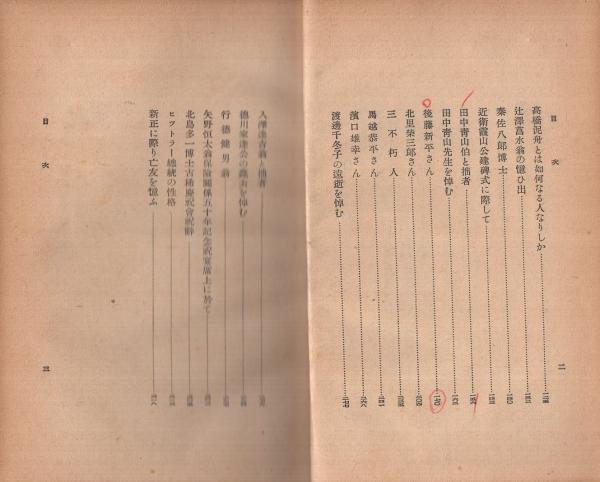 目次
高橋泥舟とは如何なる人なりしか
辻澤菖水翁の憶ひ出
秦佐八郎博士
近衛霞山公建碑式に際して
田中青山伯と拙者
田中青山先生を悼む
後藤新平さん
北里柴三郎さん
三不朽人
馬越恭平さん
濱口雄幸さん
渡邊千冬子の遠逝を悼む
二
入澤達吉翁と拙者
德川家達公の薨去を悼む
行德健男翁
矢野恒太翁保險關係五十年記念祝宴席上に於て
北島多一博士古稀慶祝會祝辭
ヒットラー總統の性格
新正に際り亡友を憶ふ
目次
三